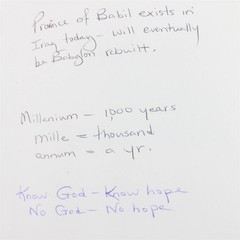 Province of Babil exists in
Iraq today - will eventually
be Babylon rebuilt.
Millenium - 1,000 years
mille = thousand
annum = a yr.
Know God - Know hope
No God - No hope